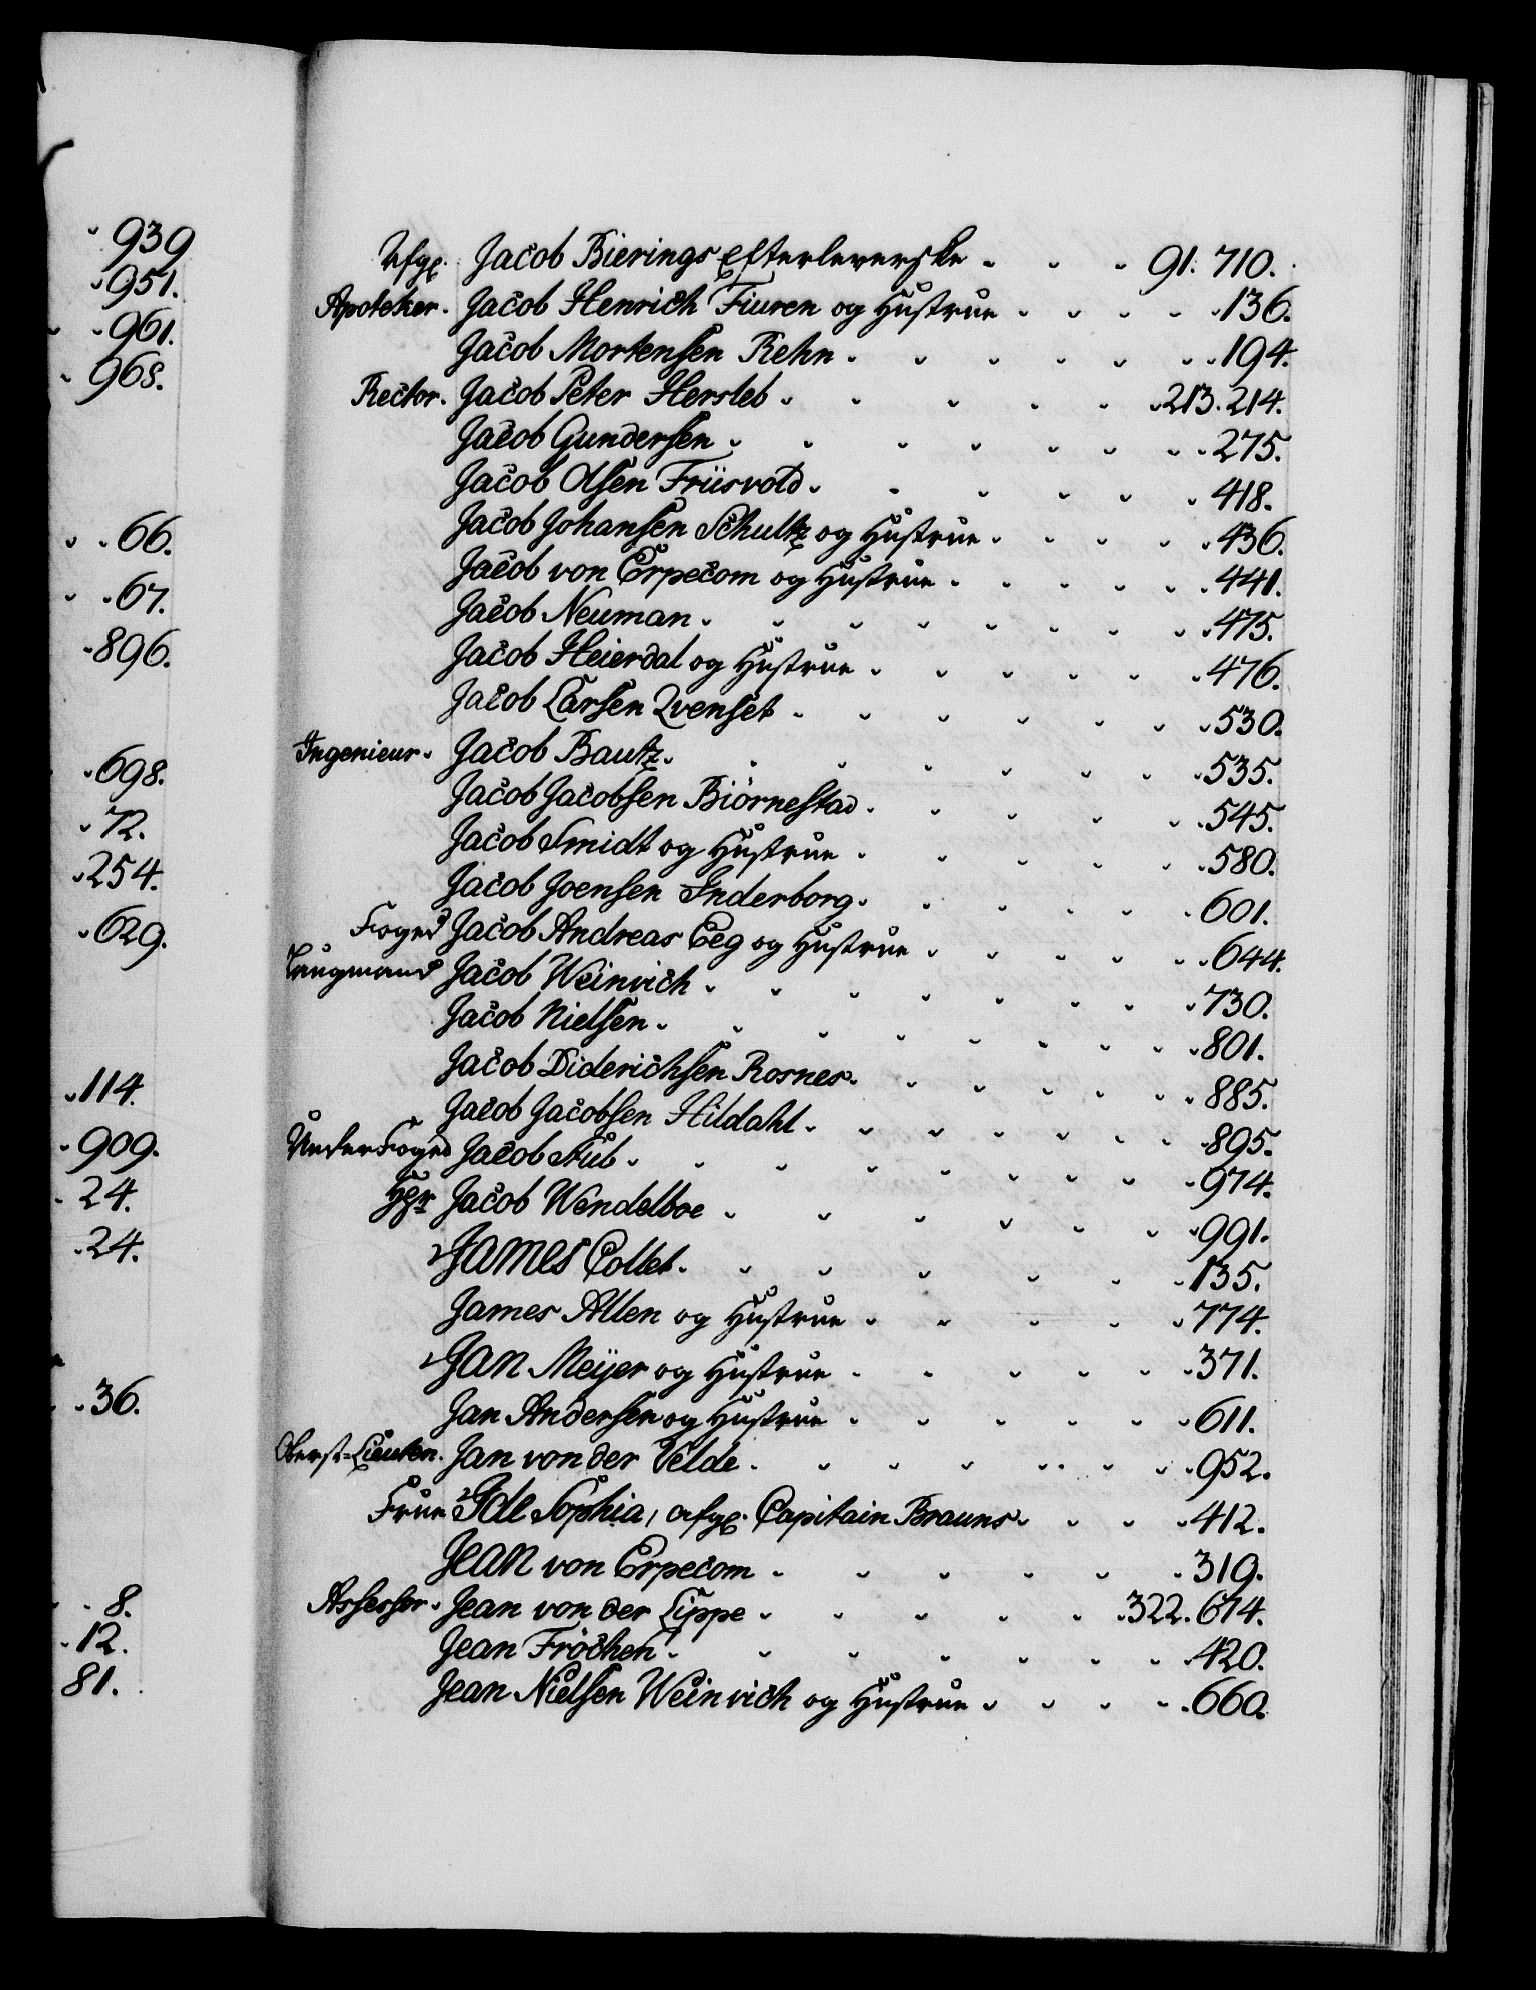 939
951.
961.
968.
66.
67.
896.
698.
72.
254.
629.
114.
909.
24.
24.
36.
8.
12.
81.
Afg. Jacob Bierings Efterleverske 91. 710.
Apoteker. Jacob Henrich Fiuren og Hustrue 136.
Jacob Mortensen Rehn 194.
Rector. Jacob Peter Hersleb 213. 214.
Jacob Gundersen 275.
Jacob Olsen Friisvold 418.
Jacob Johansen Schultz og Hustrue 436.
Jacob von Erpecom og Hustrue 441.
Jacob Neuman 475.
Jacob Heierdal og Hustrue 476.
Jacob Larsen Qvenset 530.
Ingenieur. Jacob Bautz 535.
Jacob Jacobsen Biörnestad 545.
Jacob Smidt og Hustrue 580.
Jacob Joensen Inderborg 601.
Foged Jacob Andreas Eeg og Hustrue 644.
Laugmand Jacob Weinvich 730.
Jacob Nielsen 801.
Jacob Diderichsen Rosnes 885.
Jacob Jacobsen Hildahl 895.
UnderFoged Jacob Stub 974.
Hr Jacob Wendelboe 991.
James Collet 135.
James Allen og Hustrue 774.
Jan Meyer og Hustrue 371.
Jan Andersen og Hustrue 611.
Oberst=Lieuten. Jan von der Velde 952.
Frue Ide Sophia, afg. Capitain Brauns 412.
Jean von Erpecom 319.
Assessor. Jean von der Lippe 322. 614.
Jean Fröchen 420.
Jean Nielsen Weinvich og Hustrue 660.